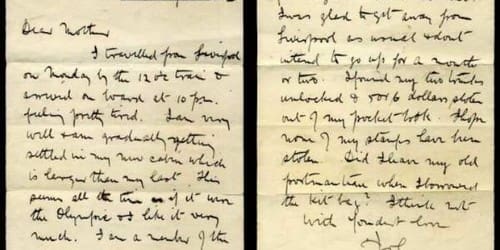 Dear Mother
I travelled from Liverpool
on Monday by the 12 o'c train &
arrived on board at 10 p.m.
feeling pretty tired. I am very
well & am gradually getting
settled in my new cabin which
is larger than my last. This
seems all the time as if it were
the Olympic & I like it very
much. I am a member of the
I was glad to get away from
Liverpool as usual & dont
intend to go up for a month
or two. I found my two trunks
unlocked & 5 or 6 dollars stolen
out of my pocket book. I hope
none of my stamps have been
stolen. Did I leave my old
portmanteau when I borrowed
the kit bag? I think not
With fondest love